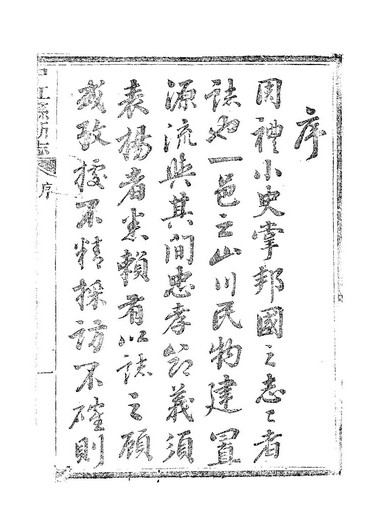 序
周禮小史掌邦國之志志者
誌也一邑之山川民物建置
源流與其間忠孝節義須
表揚者悉賴有以誌之顧
或考據不精採訪不確則
江縣志
序